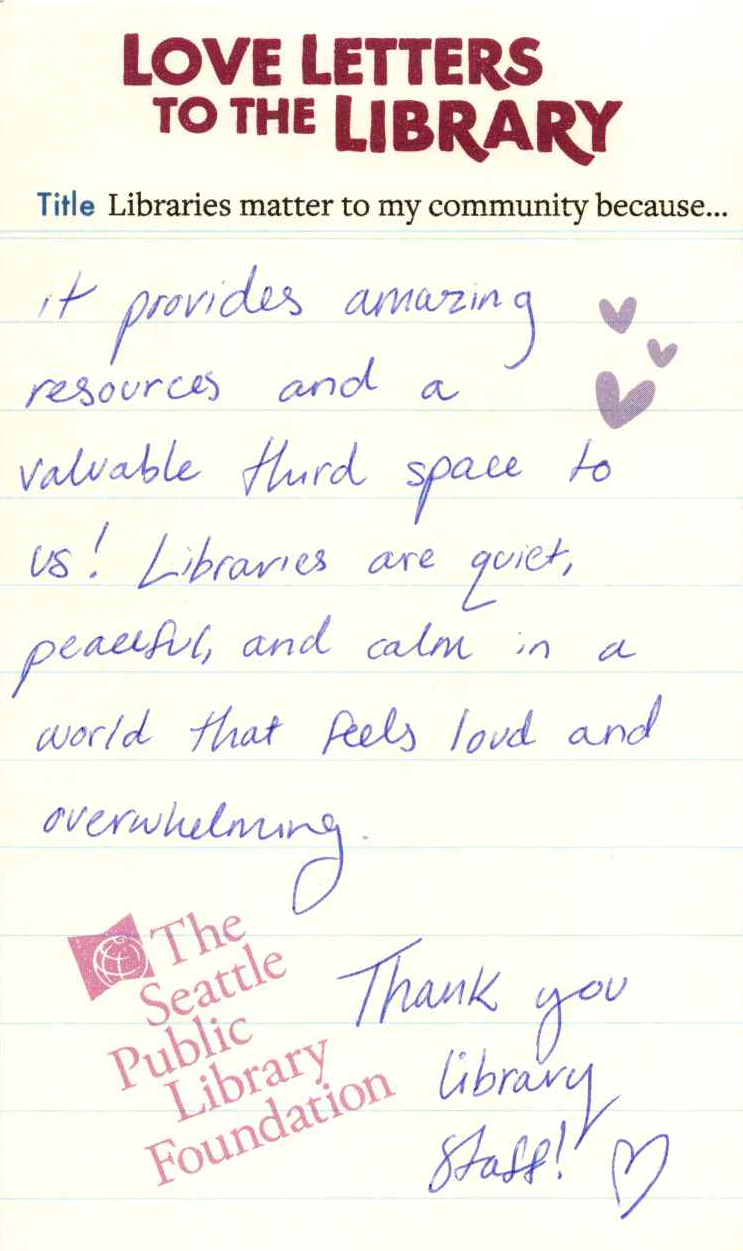 LOVE LETTERS
TO THE LIBRARY
Title Libraries matter to my community because...
it provides amazing
resources and a
valuable third space to
us! Libraries are quiet,
peaceful, and calm in a
world that feels loud and
overwhelming.
The
Seattle
Public
Library
Foundation
Thank you
library
staff!